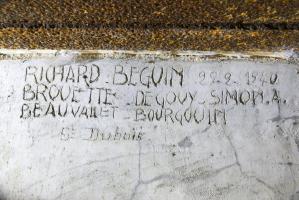 RICHARD - BEGUIN 22.2.1940
BROUETTE - DEGOUY - SIMON.A.
BEAUVALLET - BOURGOUIN
Dubois